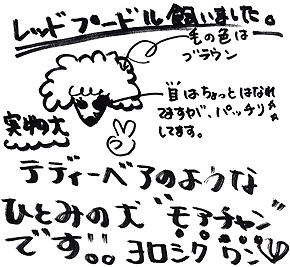 レッドプードル飼いました。
毛の色は
ブラウン
目はちょっとはなれ
てますが、パッチリ
してます。
実物の犬
テディーベアのような
ひとみの犬"モアチャン"
です!! ヨロシクワン